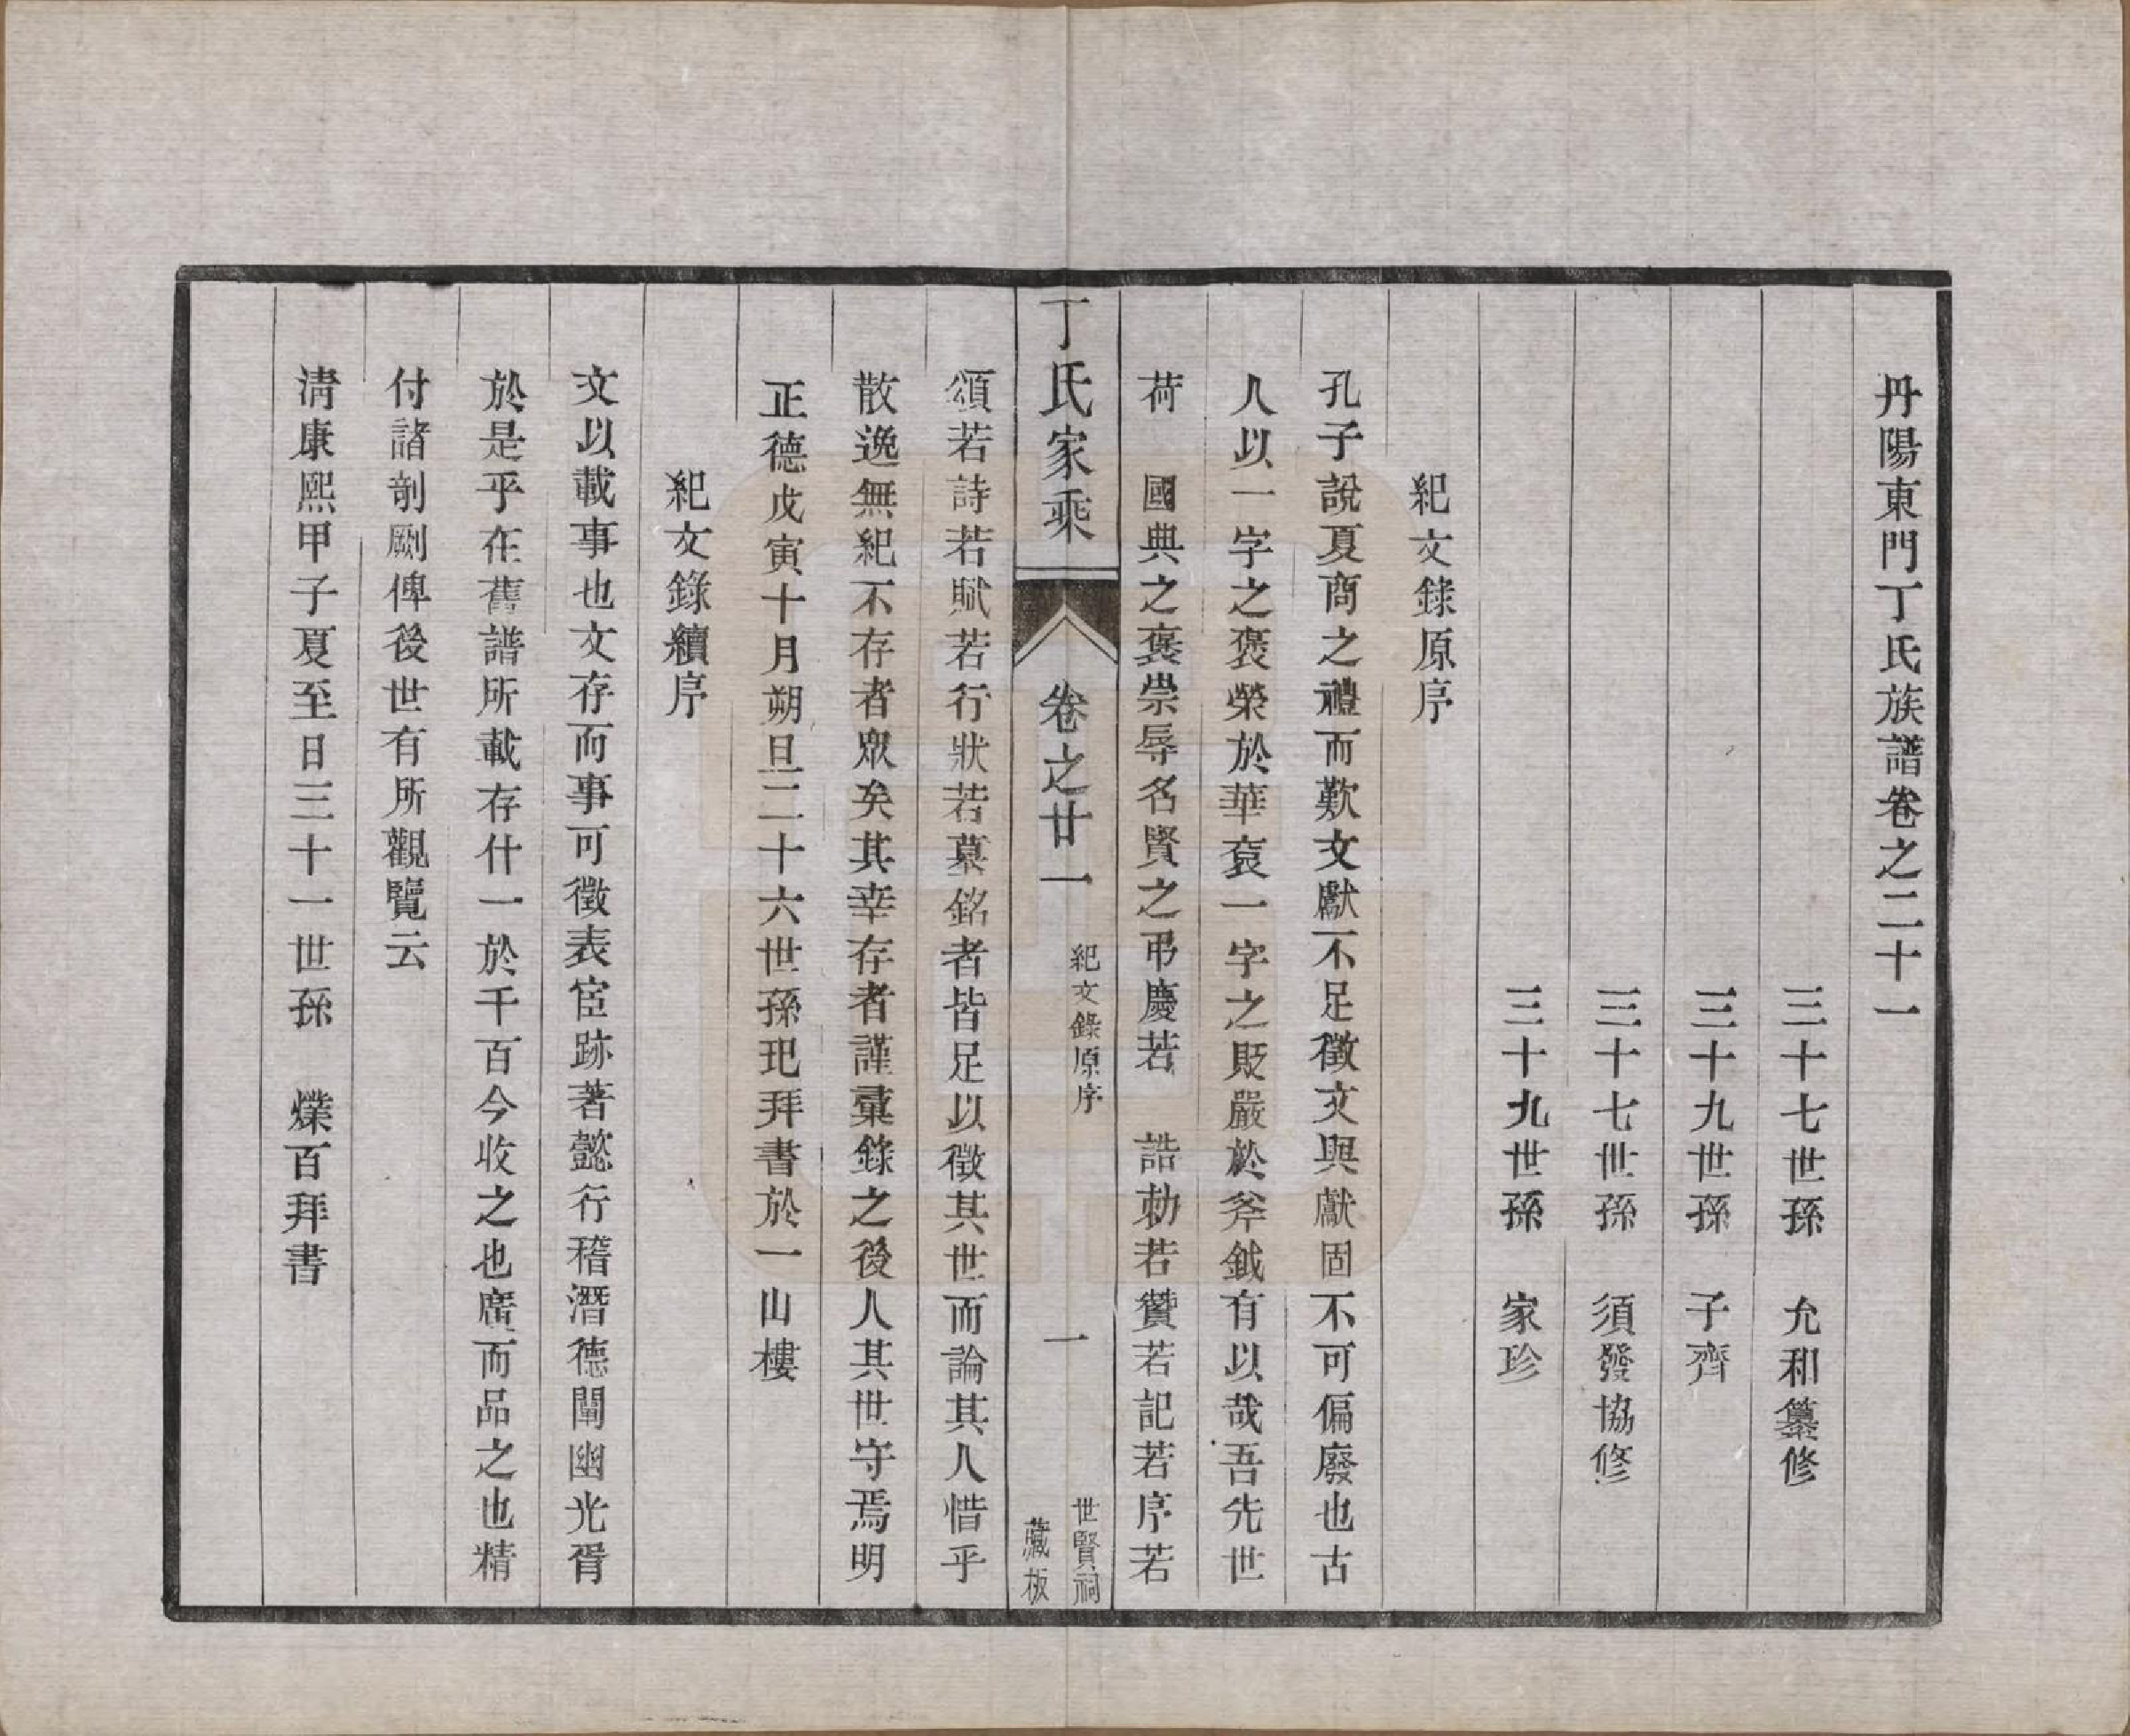 丹陽東門丁氏族譜卷之二十一
三十七世孫　允和纂修
三十九世孫　子齊
三十七世孫　須發協修
三十九世孫　家珍
紀文錄原序
孔子說夏商之禮而歎文獻不足徵文與獻固不可偏廢也古
人以一字之褒榮於華袞一字之貶嚴於斧鉞有以哉吾先世
荷　國典之褒崇辱名賢之弔慶若　誥勅若贊若記若序若
丁氏家乘　卷之廿一　紀文錄原序　一　世賢祠
藏板
頌若詩若賦若行狀若墓銘者皆足以徵其世而論其人惜乎
散逸無紀不存者眾矣其幸存者謹彙錄之後人其世守焉明
正德戊寅十月朔旦二十六世孫玘拜書於一山樓
紀文錄續序
文以載事也文存而事可徵表宦跡著懿行稽潛德闡幽光胥
於是乎在舊譜所載存什一於千百今收之也廣而品之也精
付諸剞劂俾後世有所觀覽云
清康熙甲子夏至日三十一世孫　爍百拜書